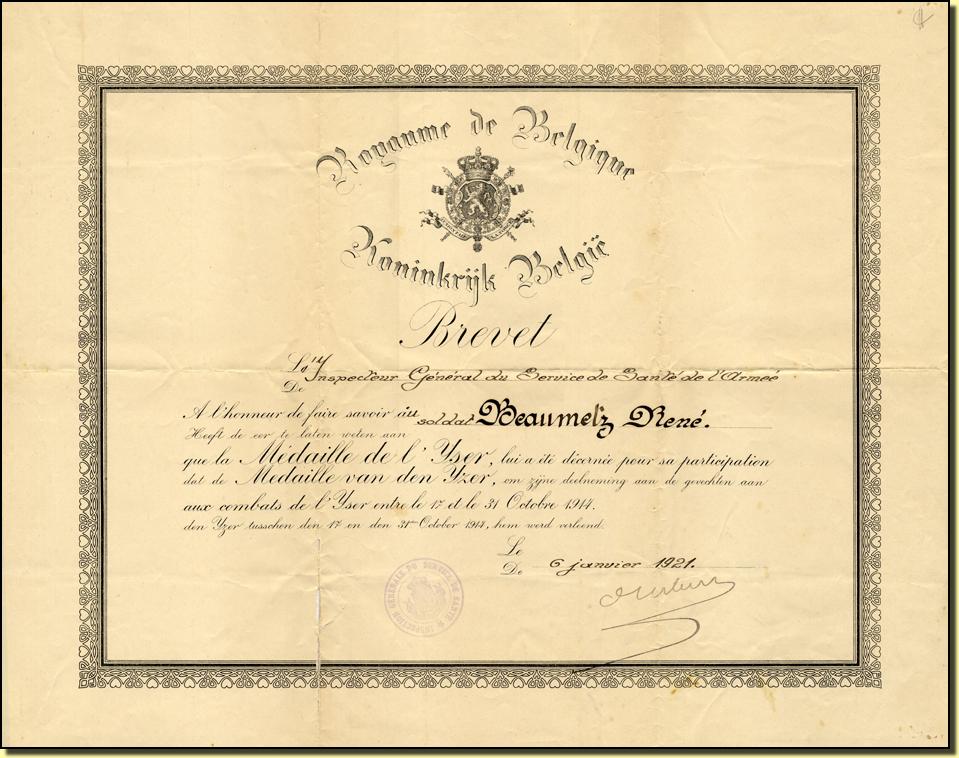 Royaume de Belgique
Koninkrijk België
Brevet
L'Inspecteur Général du Service de Santé de l'Armée
De
A l'honneur de faire savoir au soldat Beaumelz René.
Heeft de eer te laten weten aan
que la Médaille de l'Yser, lui a été décernée pour sa participation
dat de Medaille van den Yzer, om zijne deelneming aan de gevechten aan
aux combats de l'Yser entre le 17 et le 31 Octobre 1914.
den Yzer tusschen den 17 en den 31en October 1914, hem werd verleend.
Le
De 6 janvier 1921.
INSPECTION GÉNÉRALE DU SERVICE DE SANTÉ